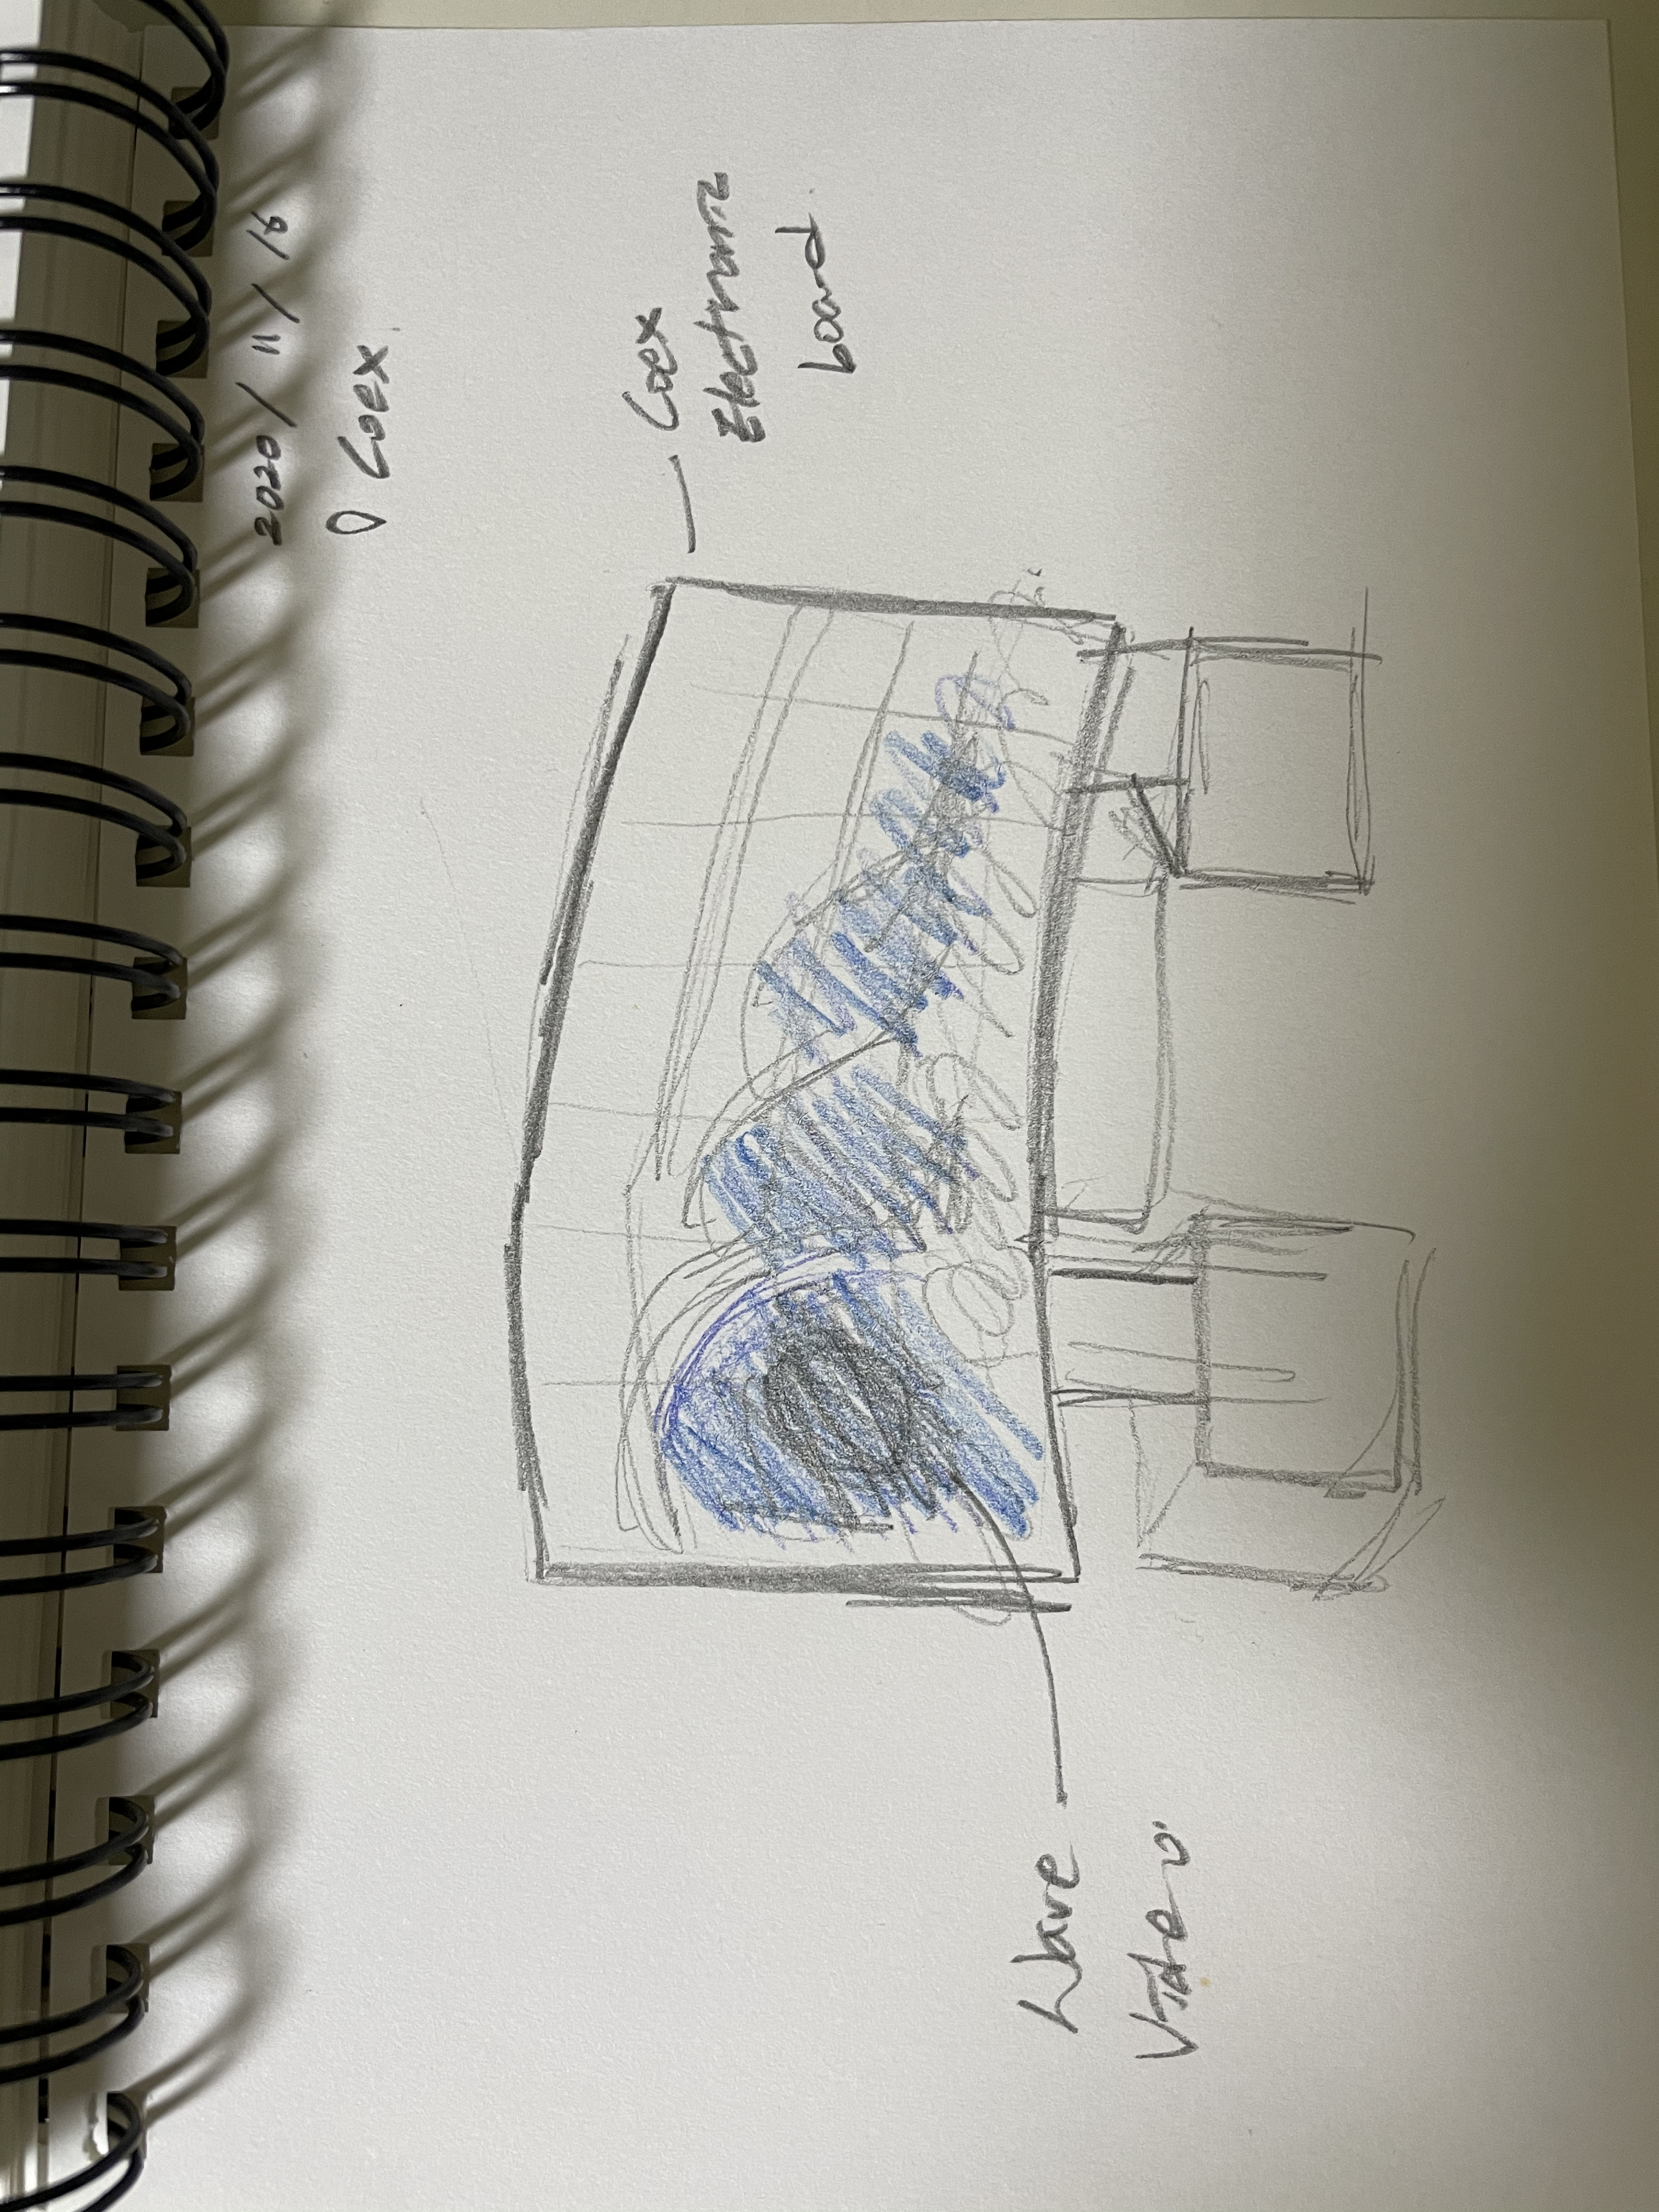 2020 / 11 / 16
Coex
Coex
Electronic
board
Wave
Video